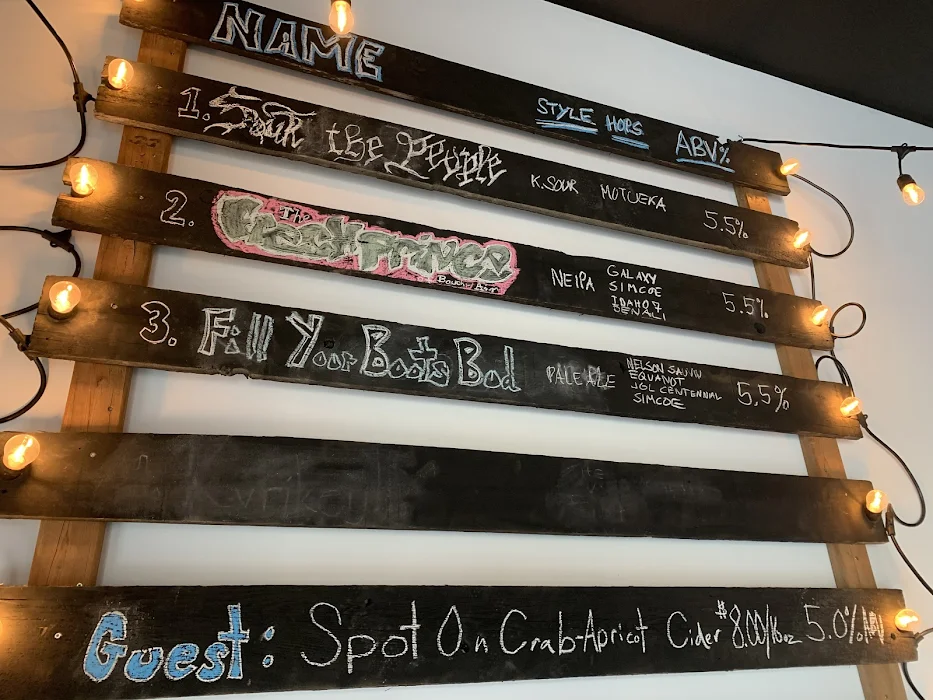 NAME STYLE HOPS ABV%
1. Sour the People K.SOUR MOTUEKA 5.5%
2. The Fresh Prince NEIPA GALAXY 5.5%
SIMCOE
IDAHO 7
DENALI
3. Fill Your Boots Bud PALE ALE NELSON SAUVIN 5.5%
EQUANOT
JGL CENTENNIAL
SIMCOE
Guest: Spot On Crab-Apricot Cider $8.00/16oz 5.0%